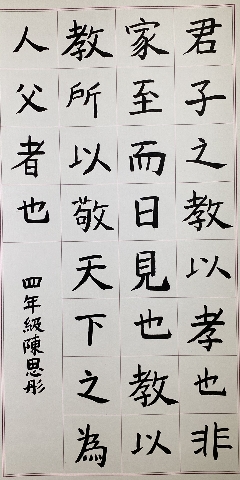 君子之教以孝也非
家至而日見也教以
教所以敬天下之為
人父者也
四年級陳思彤